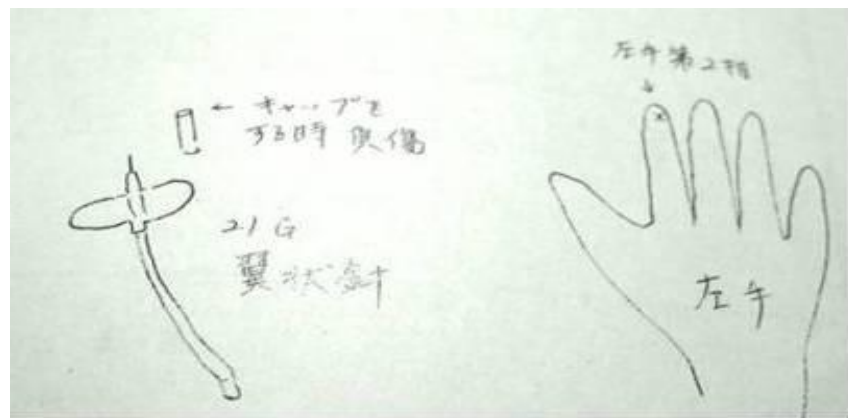 ← キャップを
する時 受傷
21G
翼状針
左手第2指
左手